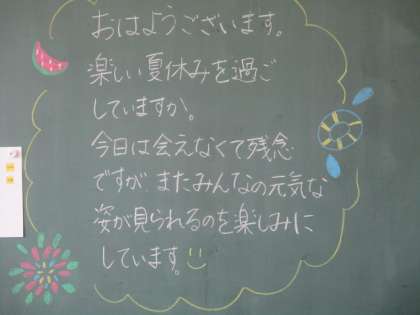 おはようございます。
楽しい夏休みを過ご
していますか。
今日は会えなくて残念
ですが、またみんなの元気な
姿が見られるのを楽しみに
しています。